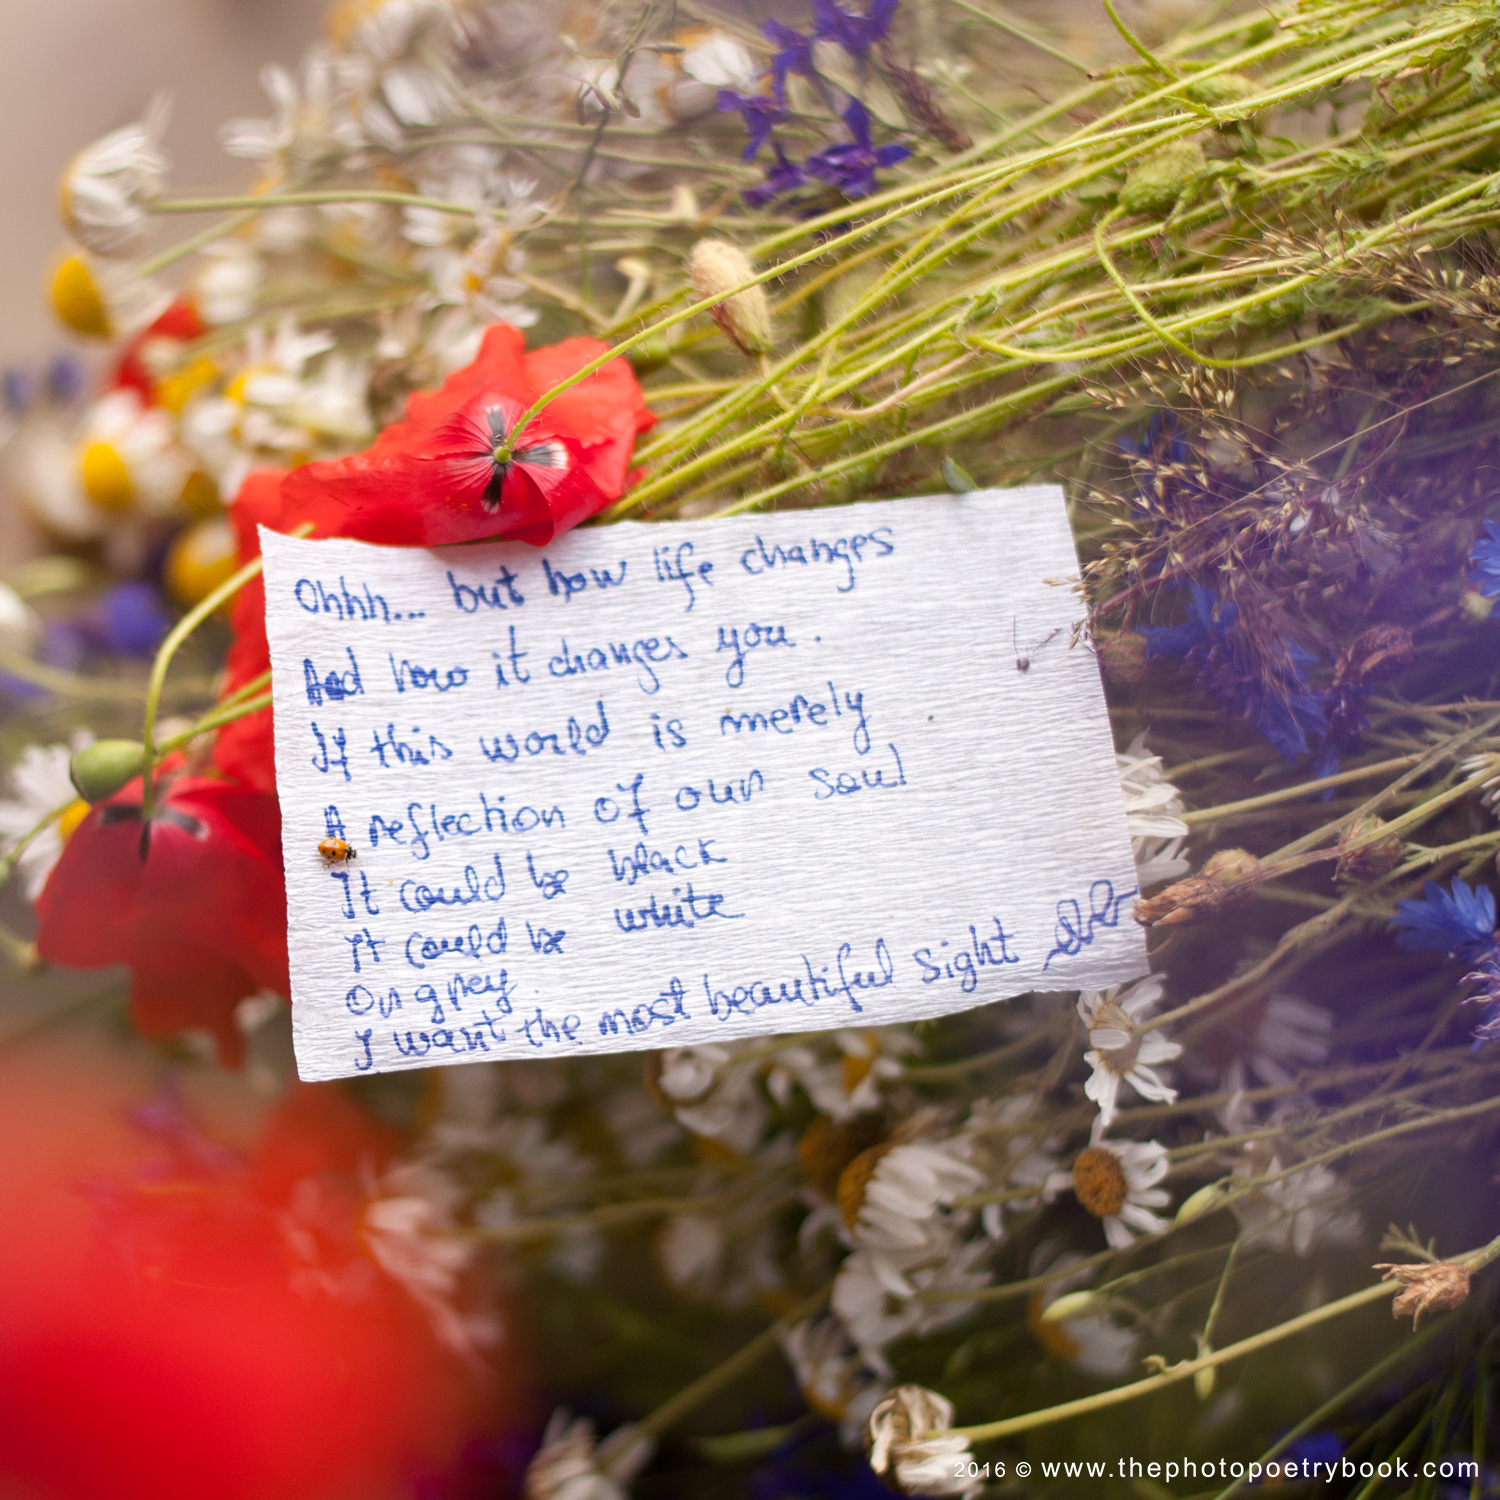 Ohhh... but how life changes
And how it changes you.
If this world is merely
A reflection of our soul
It could be black
It could be white
Or grey.
I want the most beautiful sight
2016 © www.thephotopoetrybook.com